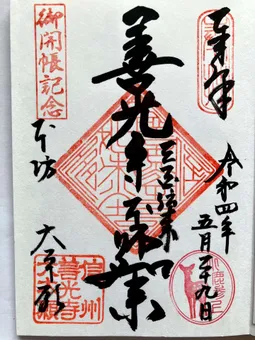 奉拝
令和四年
五月二十九日
三国伝来
善光寺如来
御開帳記念
本坊
大本願
信州
善光寺
大本願